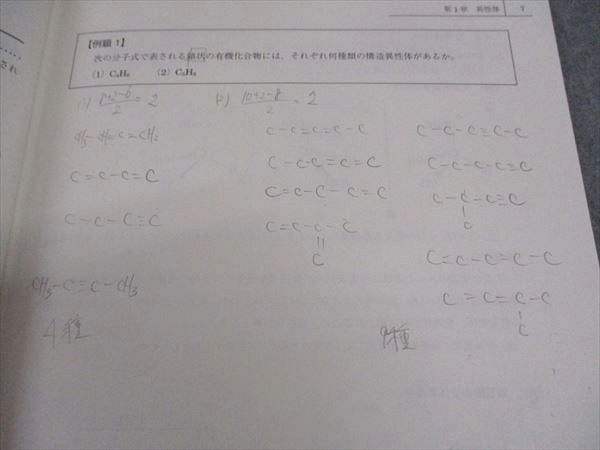 第1章 異性体 7
【例題1】
次の分子式で表される鎖状の有機化合物には、それぞれ何種類の構造異性体があるか。
(1) C₄H₆ (2) C₅H₈
(1) 8+2-6/2 = 2
10+2-8/2 = 2
CH₃-CH=C=CH₂
C=C-C=C
C-C-C≡C
CH₃-C≡C-CH₃
4種
C-C=C=C-C
C-C-C=C=C
C=C-C-C=C
C=C-C-C
||
C
C-C-C≡C-C
C-C-C-C≡C
C-C-C≡C
|
C
C=C-C=C-C
C=C=C-C
|
C
9種